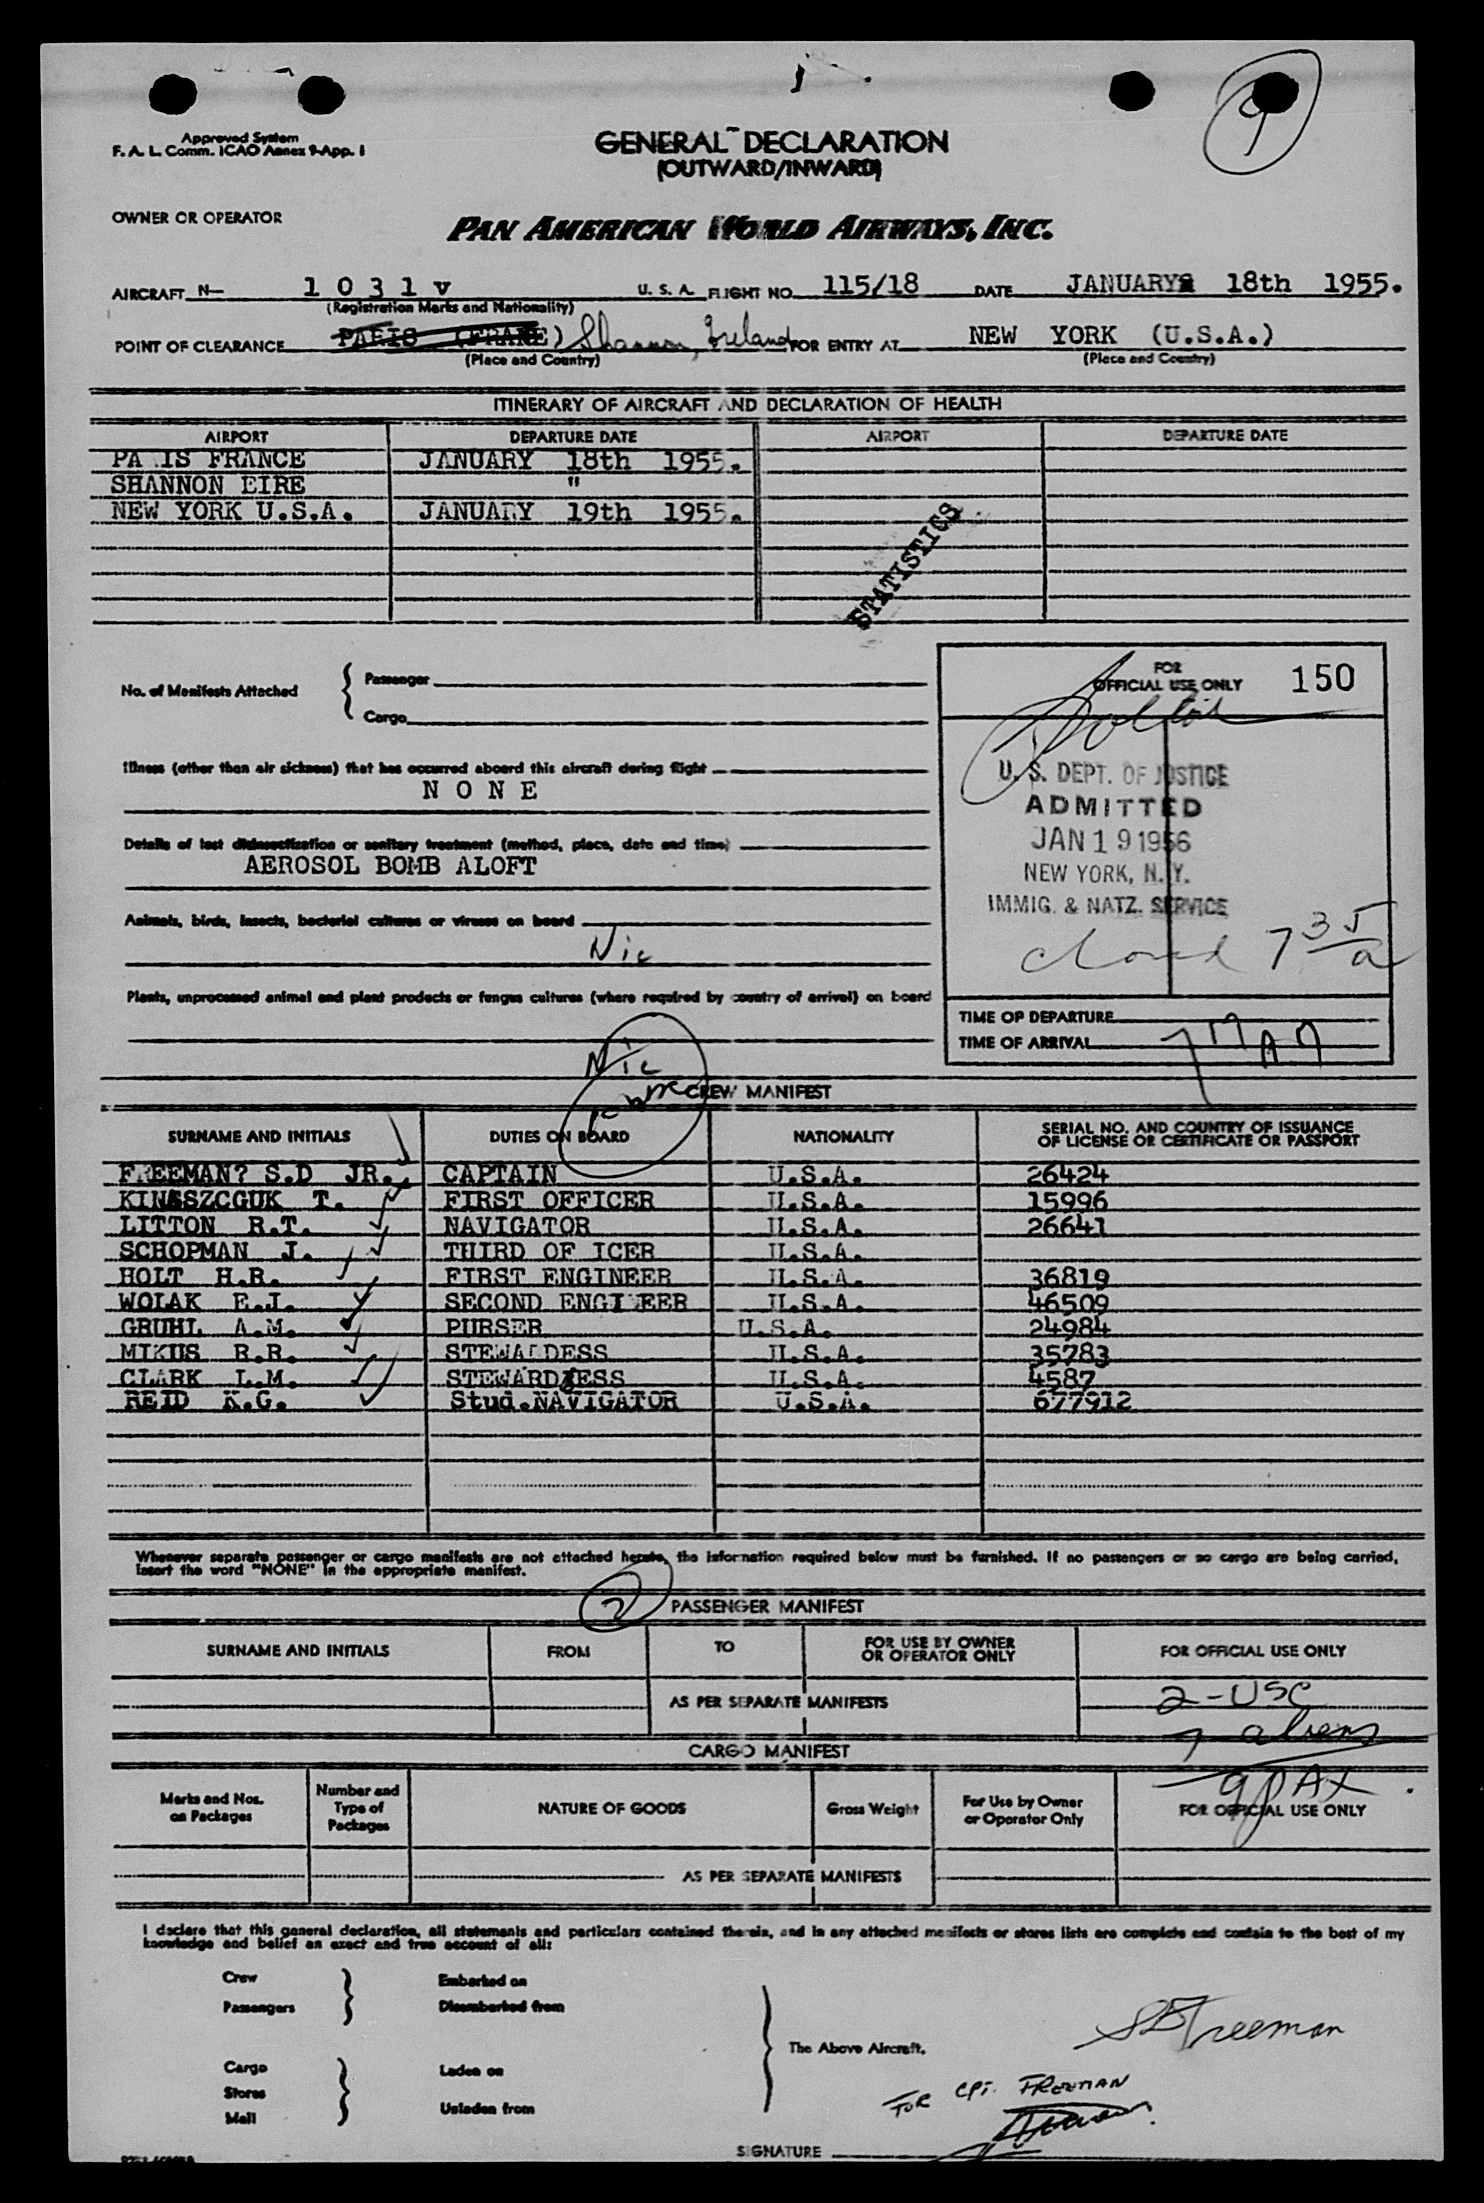 9
Approved System
F. A. L. Comm. ICAO Annex 9-App. 1
GENERAL DECLARATION
(OUTWARD/INWARD)
OWNER OR OPERATOR
PAN AMERICAN WORLD AIRWAYS, INC.
AIRCRAFT N— 1 0 3 1 v U. S. A. FLIGHT NO. 115/18 DATE JANUARY 18th 1955.
(Registration Marks and Nationality)
POINT OF CLEARANCE PARIS (FRANE) Shannon, Ireland FOR ENTRY AT NEW YORK (U.S.A.)
(Place and Country) (Place and Country)
ITINERARY OF AIRCRAFT AND DECLARATION OF HEALTH
AIRPORT DEPARTURE DATE AIRPORT DEPARTURE DATE
PA IS FRANCE JANUARY 18th 1955.
SHANNON EIRE "
NEW YORK U.S.A. JANUARY 19th 1955.
STATISTICS
No. of Manifests Attached
Passenger
Cargo
FOR
OFFICIAL USE ONLY 150
Illness (other than air sickness) that has occurred aboard this aircraft during flight
N O N E
U. S. DEPT. OF JUSTICE
ADMITTED
JAN 19 1956
NEW YORK, N.Y.
IMMIG. & NATZ. SERVICE
Details of last disinsectization or sanitary treatment (method, place, date and time)
AEROSOL BOMB ALOFT
Animals, birds, insects, bacterial cultures or viruses on board
Nic
7 35 a
Plants, unprocessed animal and plant products or fungus cultures (where required by country of arrival) on board
Nic
TIME OF DEPARTURE
TIME OF ARRIVAL
CREW MANIFEST
SURNAME AND INITIALS DUTIES ON BOARD NATIONALITY SERIAL NO. AND COUNTRY OF ISSUANCE
OF LICENSE OR CERTIFICATE OR PASSPORT
FREEMAN? S.D JR. CAPTAIN U.S.A. 26424
KINASZCGUK T. FIRST OFFICER U.S.A. 15996
LITTON R.T. NAVIGATOR U.S.A. 26641
SCHOPMAN J. THIRD OF ICER U.S.A.
HOLT H.R. FIRST ENGINEER U.S.A. 36819
WOLAK E.J. SECOND ENGINEER U.S.A. 46509
GRUHL A.M. PURSER U.S.A. 24984
MIKUS R.R. STEWARDESS U.S.A. 35783
CLARK L.M. STEWARDESS U.S.A. 4587
REID K.G. Stud.NAVIGATOR U.S.A. 677912
Whenever separate passenger or cargo manifests are not attached hereto, the information required below must be furnished. If no passengers or no cargo are being carried,
insert the word "NONE" in the appropriate manifest.
2
PASSENGER MANIFEST
SURNAME AND INITIALS FROM TO FOR USE BY OWNER
OR OPERATOR ONLY FOR OFFICIAL USE ONLY
AS PER SEPARATE MANIFESTS
2-USC
7 aliens
9 PAX
CARGO MANIFEST
Marks and Nos.
on Packages
Number and
Type of
Packages
NATURE OF GOODS Gross Weight
For Use by Owner
or Operator Only
FOR OFFICIAL USE ONLY
AS PER SEPARATE MANIFESTS
I declare that this general declaration, all statements and particulars contained therein, and in any attached manifests or stores lists are complete and contain to the best of my
knowledge and belief an exact and true account of all:
Crew Embarked on
Passengers Disembarked from
The Above Aircraft.
SDFreeman
Cargo Laden on
Stores
Mail Unladen from
FOR CPT. FREEMAN
SIGNATURE